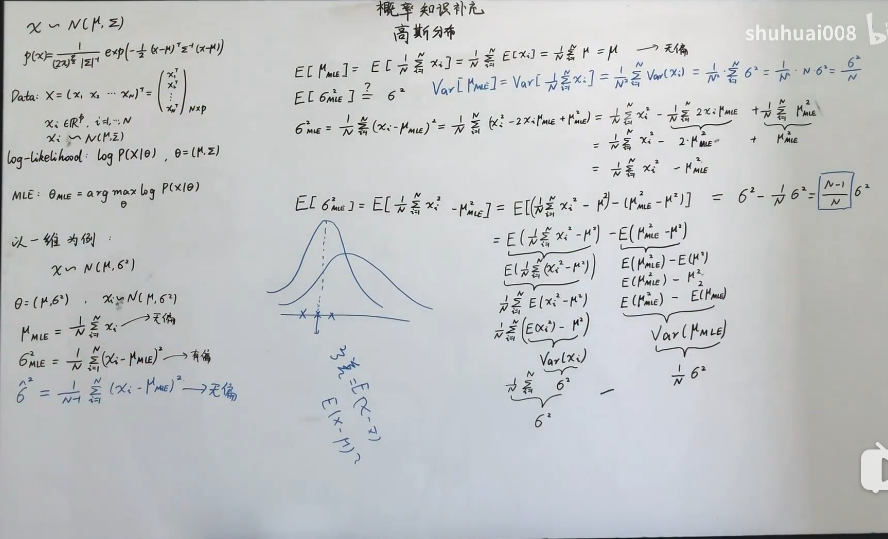 概率知识补充
高斯分布
shuhuai008
x ∽ N(μ, Σ)
p(x)= 1/((2π)^{p/2} |Σ|^{1/2}) exp(-1/2 (x-μ)ᵀ Σ⁻¹ (x-μ))
Data: X = (x₁ x₂ ⋯ x_N)ᵀ = (x₁ᵀ x₂ᵀ ⋮ x_Nᵀ) N×p
xᵢ ∈ ℝᵖ, i=1,⋯,N
xᵢ ∽ N(μ,Σ)
log-likelihood: log P(X|θ), θ=(μ,Σ)
MLE: θ_MLE = arg max_θ log P(X|θ)
以一维为例:
x ∽ N(μ,σ²)
θ=(μ,σ²), xᵢ ∽ N(μ,σ²)
μ_MLE = 1/N Σ_{i=1}^N xᵢ → 无偏
σ²_MLE = 1/N Σ_{i=1}^N (xᵢ-μ_MLE)² → 有偏
σ̂² = 1/(N-1) Σ_{i=1}^N (xᵢ-μ_MLE)² → 无偏
E[μ_MLE] = E[1/N Σ_{i=1}^N xᵢ] = 1/N Σ_{i=1}^N E[xᵢ] = 1/N Σ_{i=1}^N μ = μ → 无偏
Var[μ_MLE] = Var[1/N Σ_{i=1}^N xᵢ] = 1/N² Σ_{i=1}^N Var(xᵢ) = 1/N² · Σ_{i=1}^N σ² = 1/N² · N·σ² = σ²/N
E[σ²_MLE] ?= σ²
σ²_MLE = 1/N Σ_{i=1}^N (xᵢ-μ_MLE)² = 1/N Σ_{i=1}^N (xᵢ² - 2xᵢμ_MLE + μ²_MLE) = 1/N Σ_{i=1}^N xᵢ² - 1/N Σ_{i=1}^N 2xᵢμ_MLE + 1/N Σ_{i=1}^N μ²_MLE
= 1/N Σ_{i=1}^N xᵢ² - 2·μ²_MLE + μ²_MLE
= 1/N Σ_{i=1}^N xᵢ² - μ²_MLE
E[σ²_MLE] = E[1/N Σ_{i=1}^N xᵢ² - μ²_MLE] = E[(1/N Σ_{i=1}^N xᵢ² - μ²) - (μ²_MLE - μ²)] = σ² - 1/N σ² = (N-1)/N σ²
= E(1/N Σ_{i=1}^N xᵢ² - μ²) - E(μ²_MLE - μ²)
E(1/N Σ_{i=1}^N (xᵢ²-μ²)) E(μ²_MLE) - E(μ²)
E(μ²_MLE) - μ²
1/N Σ_{i=1}^N E(xᵢ²-μ²) E(μ²_MLE) - E(μ_MLE)
1/N Σ_{i=1}^N (E(xᵢ²) - μ²) Var(μ_MLE)
Var(xᵢ) 1/N σ²
1/N Σ_{i=1}^N σ² —
σ²
x x x